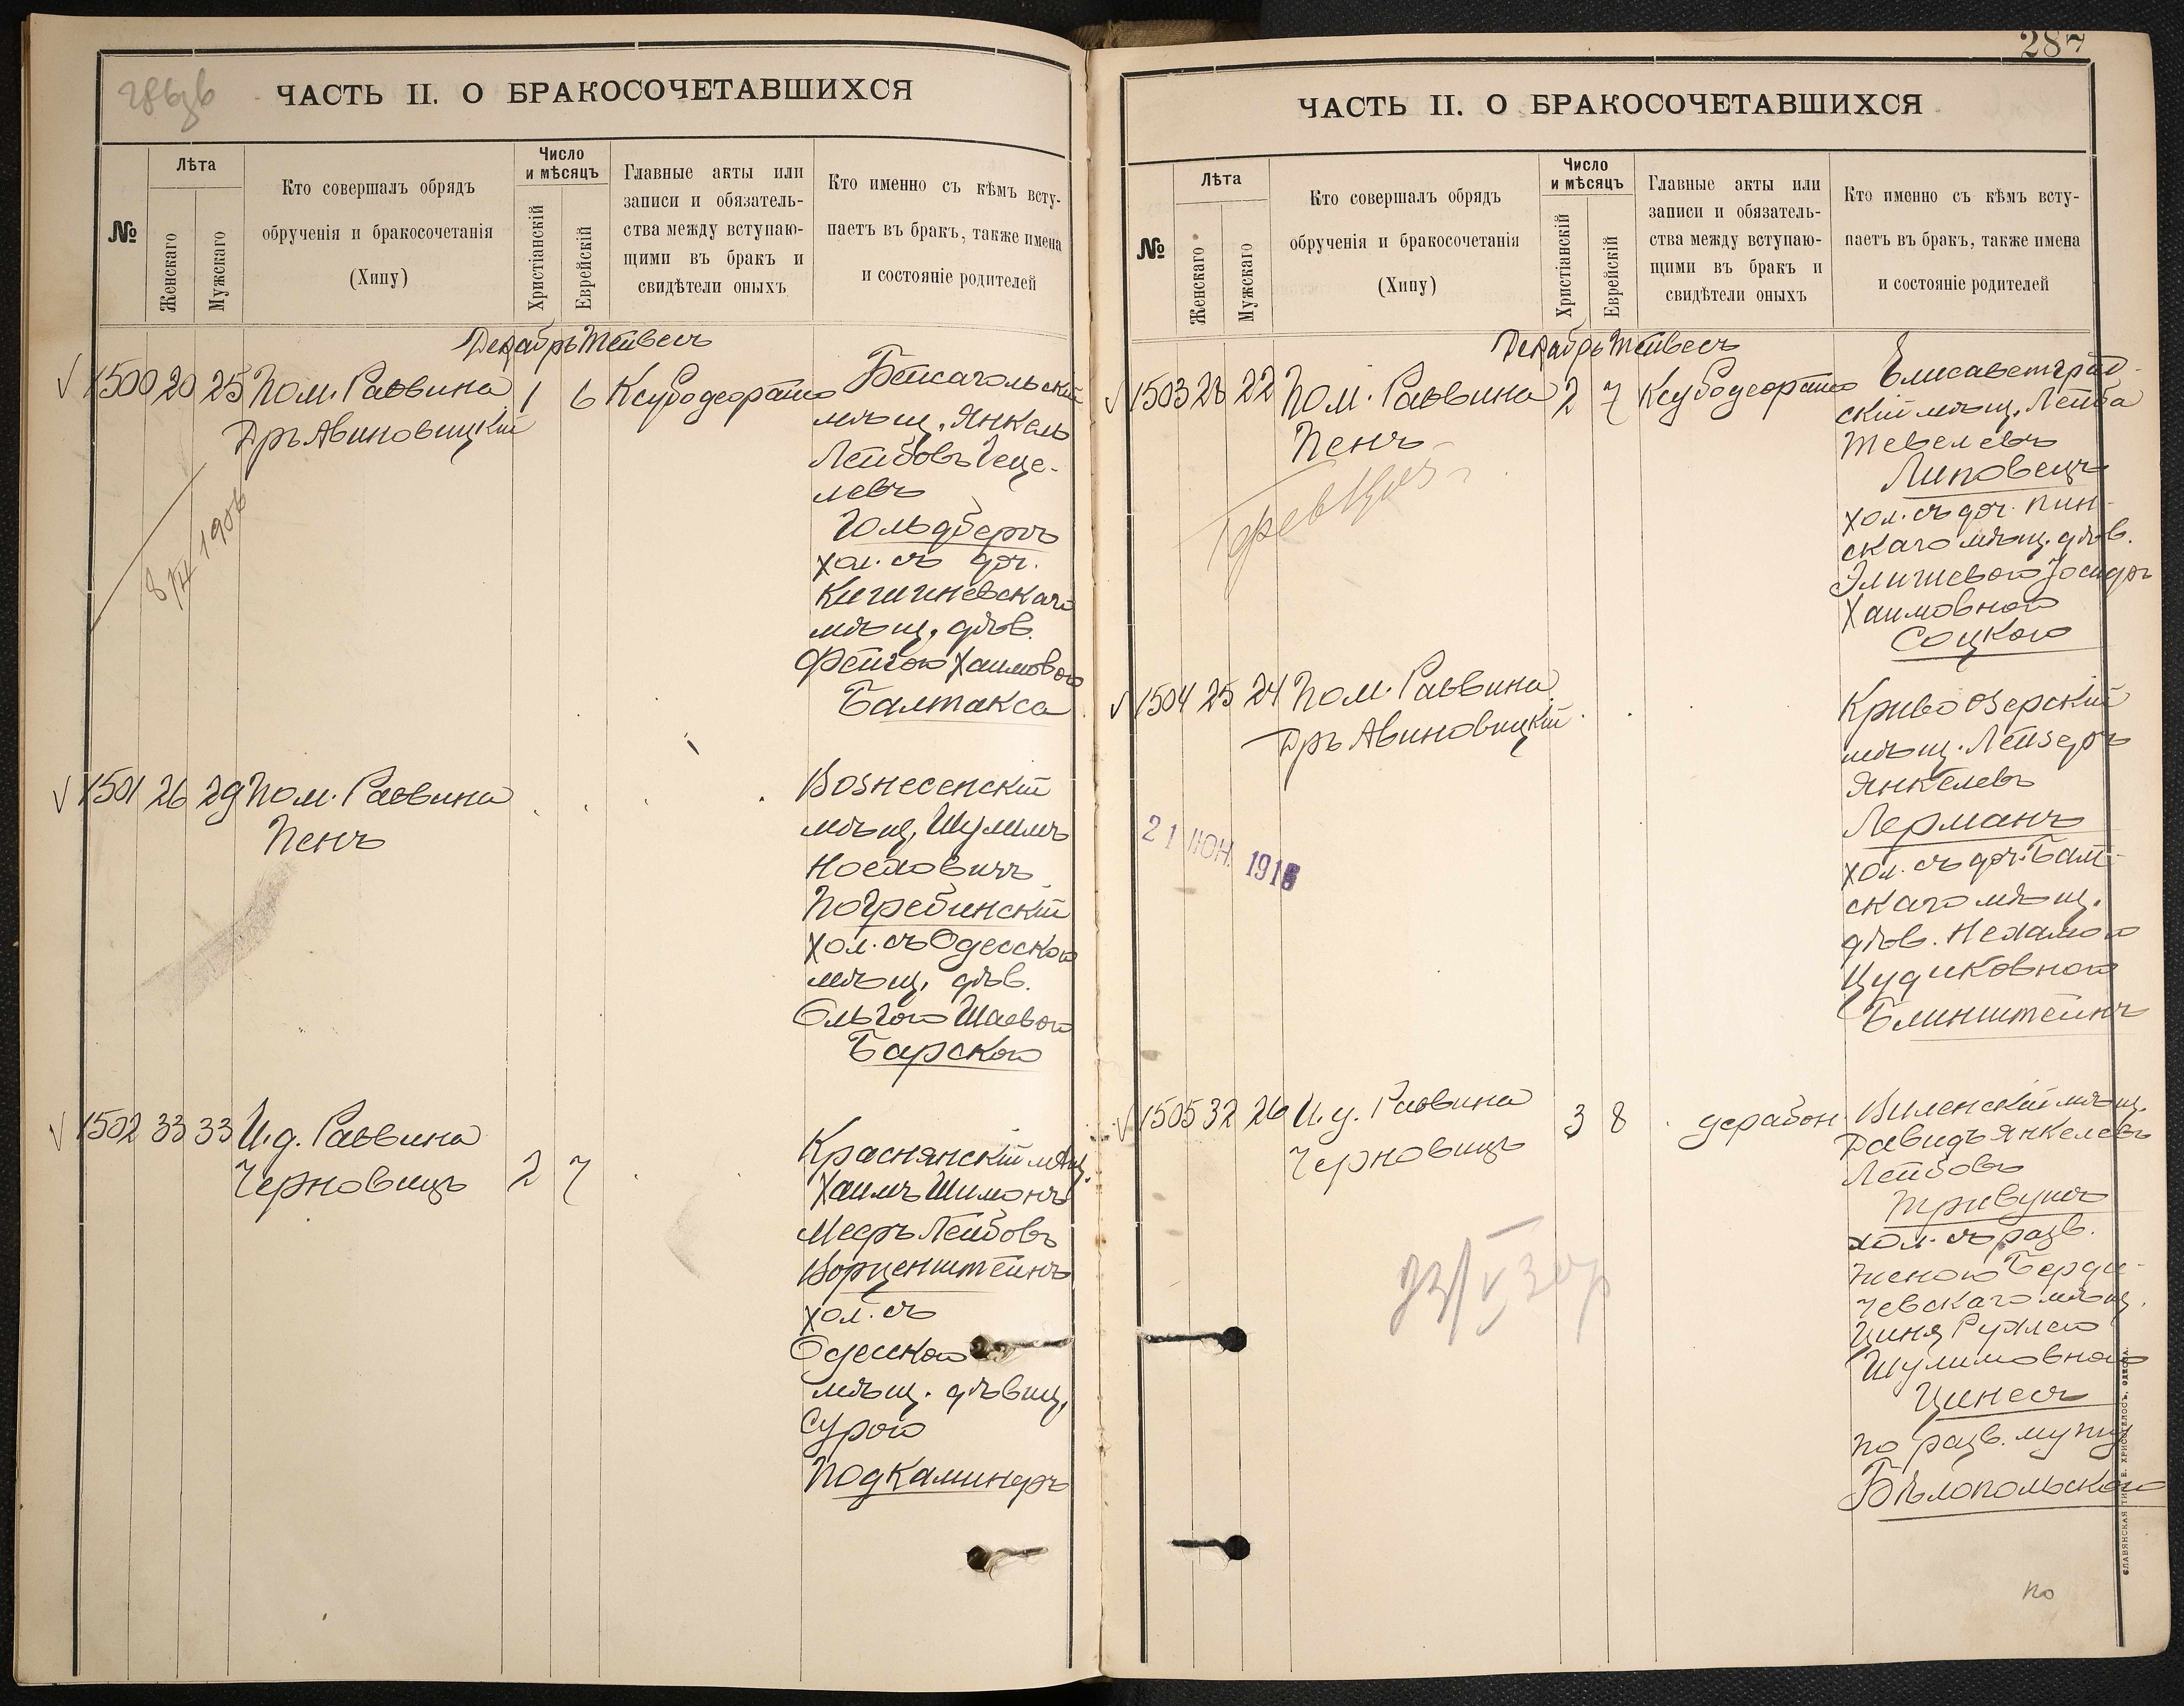 286зв
ЧАСТЬ II. О БРАКОСОЧЕТАВШИХСЯ
№
Лѣта
Женскаго
Мужскаго
Кто совершалъ обрядъ
обрученія и бракосочетанія
(Хипу)
Число
и мѣсяцъ
Христіанскій
Еврейскій
Главные акты или
записи и обязатель-
ства между вступаю-
щими въ бракъ и
свидѣтели оныхъ
Кто именно съ кѣмъ всту-
паетъ въ бракъ, также имена
и состояніе родителей
Декабрь Тейвесъ
1500 20 25 Пом. Раввина 1 6
Дръ Авиновицкій
8/III 1906
Бейсагольскій
мѣщ. Янкель
Лейбовъ Геце-
левъ
Гольдбергъ
хол. съ доч.
Кишиневскаго
мѣщ. дѣв.
Фейгою Хаимовою
Балтакса
1501 26 29 Пом. Раввина
Пенъ
Вознесенскій
мѣщ. Шулимъ
Носеловичъ
Погребинскій
хол. съ Одесскою
мѣщ. дѣв.
Ольгою Шаевою
Барскою
1502 33 33 И.д. Раввина
Черновицъ 2 7
Краснянскій мѣщ.
Хаимъ Шимонъ
Мееръ Лейбовъ
Ворценштейнъ
хол. съ
Одесскою
мѣщ. дѣвиц.
Сурою
Подкаминеръ
287
ЧАСТЬ II. О БРАКОСОЧЕТАВШИХСЯ
№
Лѣта
Женскаго
Мужскаго
Кто совершалъ обрядъ
обрученія и бракосочетанія
(Хипу)
Число
и мѣсяцъ
Христіанскій
Еврейскій
Главные акты или
записи и обязатель-
ства между вступаю-
щими въ бракъ и
свидѣтели оныхъ
Кто именно съ кѣмъ всту-
паетъ въ бракъ, также имена
и состояніе родителей
Декабрь Тейвесъ
1503 28 22 Пом. Раввина 2 7
Пенъ
Елисаветград-
скій мѣщ. Лейба
Тевелевъ
Липовецъ
хол. съ доч. Пин-
скаго мѣщ. дѣв.
Хаимовною
Соцкою
1504 25 24 Пом. Раввина
Дръ Авиновицкій
21 ІЮН. 1916
Кривоозерскій
мѣщ. Лейзеръ
Янкелевъ
Лерманъ
хол. съ доч. Балт-
скаго мѣщ.
дѣв. Нехамою
Цудиковною
Блинштейнъ
1505 32 26 И.д. Раввина 3 8 дерабон
Черновицъ
Виленскій мѣщ.
Давидъ Янкелевъ
Лейбовъ
Тривушъ
хол. съ разв.
женою Берди-
чевскаго мѣщ.
Шулимовною
Цинесъ
по разв. мужу
Бѣлопольскою
СЛАВЯНСКАЯ ТИП. Е. ХРИСОГЕЛОСЪ, ОДЕССА.
по